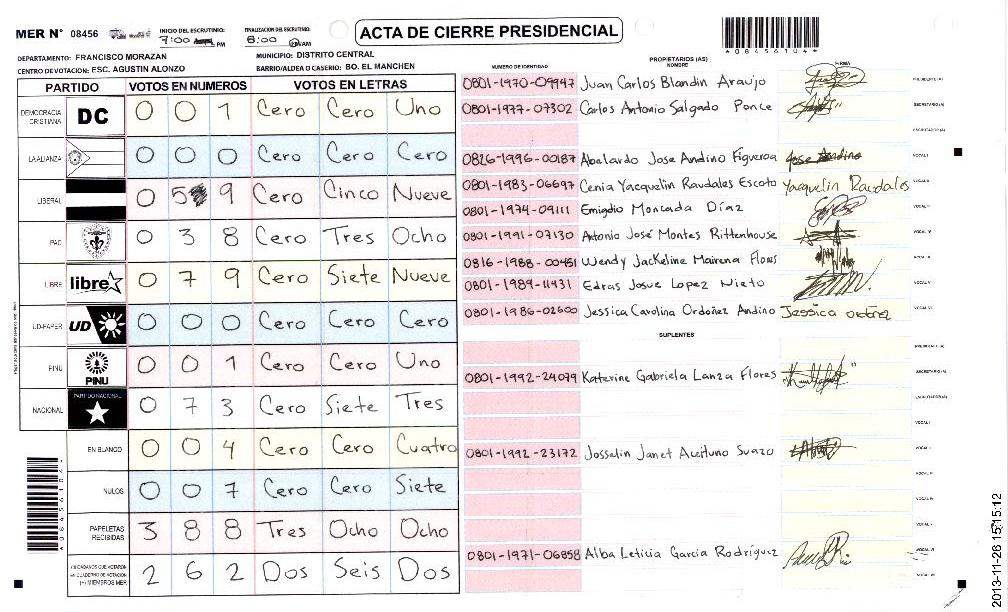 MER N° 08456
INICIO DEL ESCRUTINIO: 7:00 PM
FINALIZACION DEL ESCRUTINIO: 8:00 AM
ACTA DE CIERRE PRESIDENCIAL
*08456104*
DEPARTAMENTO: FRANCISCO MORAZAN
MUNICIPIO: DISTRITO CENTRAL
CENTRO DE VOTACION: ESC. AGUSTIN ALONZO
BARRIO/ALDEA O CASERIO: BO. EL MANCHEN
PARTIDO VOTOS EN NUMEROS VOTOS EN LETRAS
DEMOCRACIA CRISTIANA DC 0 0 1 Cero Cero Uno
LA ALIANZA 0 0 0 Cero Cero Cero
LIBERAL 0 5 9 Cero Cinco Nueve
PAC 0 3 8 Cero Tres Ocho
LIBRE libre 0 7 9 Cero Siete Nueve
UD-FAPER UD 0 0 0 Cero Cero Cero
PINU PINU 0 0 1 Cero Cero Uno
NACIONAL PARTIDO NACIONAL 0 7 3 Cero Siete Tres
EN BLANCO 0 0 4 Cero Cero Cuatro
NULOS 0 0 7 Cero Cero Siete
PAPELETAS RECIBIDAS 3 8 8 Tres Ocho Ocho
CIUDADANOS QUE VOTARON EN CUADERNO DE VOTACION (+) MIEMBROS MER 2 6 2 Dos Seis Dos
PROPIETARIOS (AS)
NUMERO DE IDENTIDAD NOMBRE FIRMA
0801-1970-09947 Juan Carlos Blandin Araujo PRESIDENTE (A)
0801-1977-07302 Carlos Antonio Salgado Ponce SECRETARIO (A)
ESCRUTADOR (A)
0826-1996-00187 Abelardo Jose Andino Figueroa Jose Andino VOCAL I
0801-1983-06697 Cenia Yacquelin Raudales Escoto Yacquelin Raudales VOCAL II
0801-1974-09111 Emigdio Moncada Díaz VOCAL III
0801-1991-07130 Antonio José Montes Rittenhouse VOCAL IV
0816-1988-00451 Wendy Jackeline Mairena Flores
0801-1989-11431 Edras Josue Lopez Nieto
0801-1986-02600 Jessica Carolina Ordoñez Andino Jessica ordoñez
SUPLENTES
PRESIDENTE (A)
0801-1992-24079 Katerine Gabriela Lanza Flores SECRETARIO (A)
ESCRUTADOR (A)
VOCAL I
0801-1992-23172 Josselin Janet Aceituno Suazo
0801-1971-06858 Alba Leticia Garcia Rodríguez
2013-11-26 15:15:12